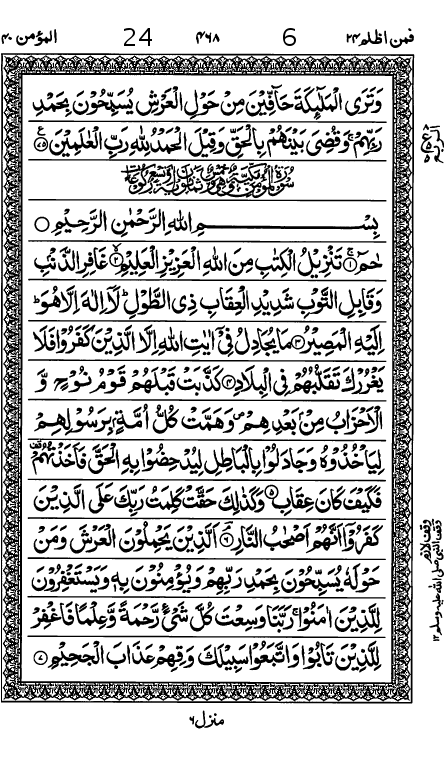 فمن اظلم ۲۴ 6 ۴۶۸ 24 المؤمن ۴۰
وَتَرَى الْمَلٰٓئِكَةَ حَآفِّيْنَ مِنْ حَوْلِ الْعَرْشِ يُسَبِّحُوْنَ بِحَمْدِ
رَبِّهِمْ ۚ وَقُضِيَ بَيْنَهُمْ بِالْحَقِّ وَقِيْلَ الْحَمْدُ لِلّٰهِ رَبِّ الْعٰلَمِيْنَ ۷۵
بِسْمِ اللّٰهِ الرَّحْمٰنِ الرَّحِيْمِ
حٰمٓ ۚ ۱ تَنْزِيْلُ الْكِتٰبِ مِنَ اللّٰهِ الْعَزِيْزِ الْعَلِيْمِ ۙ ۲ غَافِرِ الذَّنْۢبِ
وَقَابِلِ التَّوْبِ شَدِيْدِ الْعِقَابِ ذِي الطَّوْلِ ؕ لَآ اِلٰهَ اِلَّا هُوَ ؕ
اِلَيْهِ الْمَصِيْرُ ۳ مَا يُجَادِلُ فِيْٓ اٰيٰتِ اللّٰهِ اِلَّا الَّذِيْنَ كَفَرُوْا فَلَا
يَغْرُرْكَ تَقَلُّبُهُمْ فِي الْبِلَادِ ۴ كَذَّبَتْ قَبْلَهُمْ قَوْمُ نُوْحٍ وَّ
الْاَحْزَابُ مِنْۢ بَعْدِهِمْ ۪ وَهَمَّتْ كُلُّ اُمَّةٍۭ بِرَسُوْلِهِمْ
لِيَاْخُذُوْهُ وَجَادَلُوْا بِالْبَاطِلِ لِيُدْحِضُوْا بِهِ الْحَقَّ فَاَخَذْتُهُمْ
فَكَيْفَ كَانَ عِقَابِ ۵ وَكَذٰلِكَ حَقَّتْ كَلِمَتُ رَبِّكَ عَلَى الَّذِيْنَ
كَفَرُوْٓا اَنَّهُمْ اَصْحٰبُ النَّارِ ۘ ۶ اَلَّذِيْنَ يَحْمِلُوْنَ الْعَرْشَ وَمَنْ
حَوْلَهٗ يُسَبِّحُوْنَ بِحَمْدِ رَبِّهِمْ وَيُؤْمِنُوْنَ بِهٖ وَيَسْتَغْفِرُوْنَ
لِلَّذِيْنَ اٰمَنُوْا ۚ رَبَّنَا وَسِعْتَ كُلَّ شَيْءٍ رَّحْمَةً وَّعِلْمًا فَاغْفِرْ
لِلَّذِيْنَ تَابُوْا وَاتَّبَعُوْا سَبِيْلَكَ وَقِهِمْ عَذَابَ الْجَحِيْمِ ۷
منزل ۶